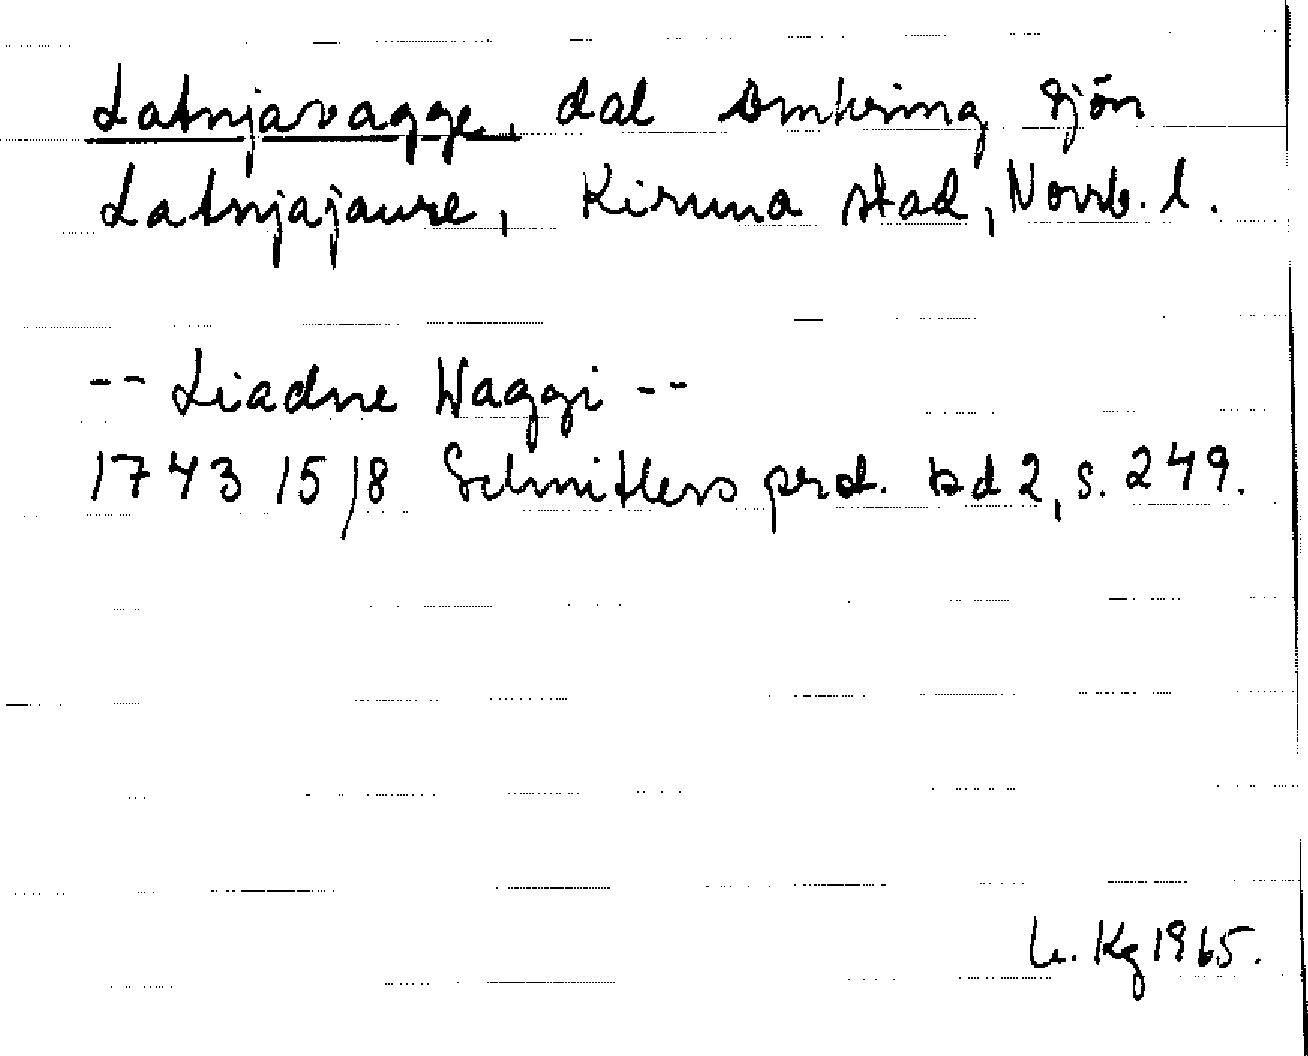 Latnjavagge, dal omkring sjön
Latnjajaure, Kiruna stad, Norrb. l.
-- Liadne Waggi --
1743 15/8 Schnitlers prot. bd 2, s. 249.
Kg 1965.